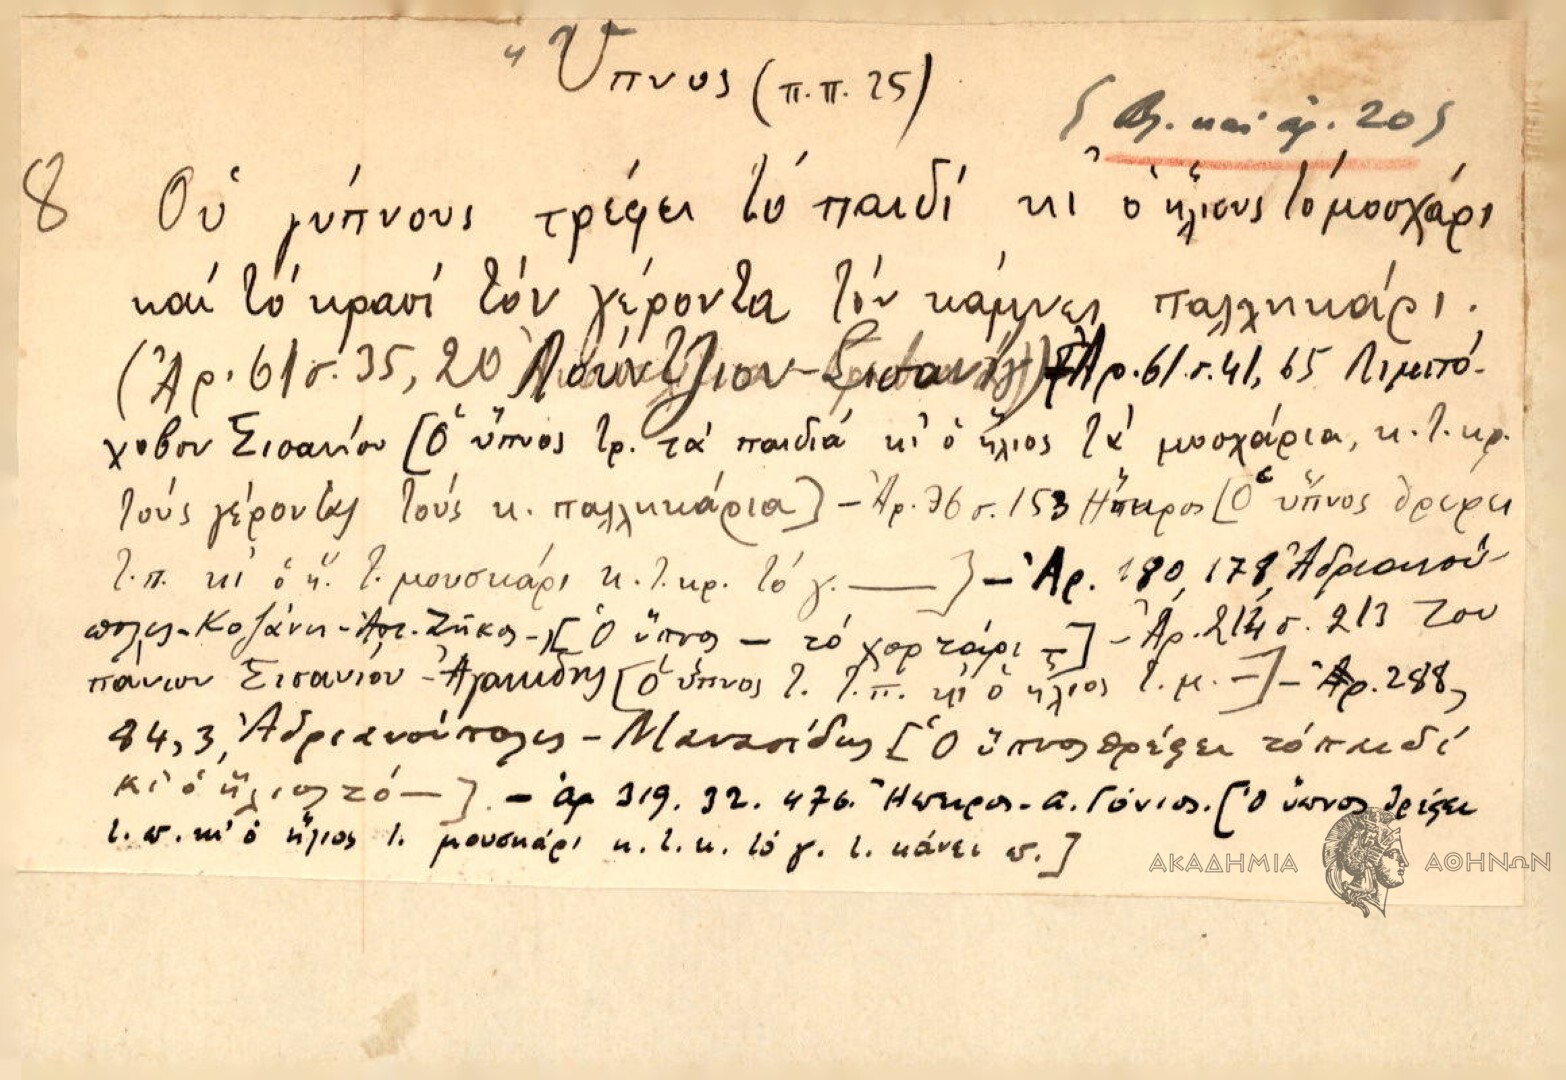 Ὕπνος (π.π. 25)
{ Βλ. καὶ ἀρ. 20 }
8 Οὑ γύπνους τρέφει τό παιδί κι ὁ ἥλιους τό μοσχάρι
καί τό κρασί τόν γέροντα τόν κάμνει παλληκάρι.
(Ἀρ. 61 σ. 35, 20 Σισανίου) Ἀρ. 61 σ. 41, 65
χοβον Σισανίου [Ὁ ὕπνος τρ. τά παιδιά κι ὁ ἥλιος τά μοσχάρια, κ. τ. κρ.
τούς γέροντες τούς κ. παλληκάρια] - Ἀρ. 76 σ. 153 Ἤπειρος [Ὁ ὕπνος θρέφει
τ. π. κι ὁ ἥ. τ. μουσκάρι κ. τ. κρ. τό γ. ——] - Ἀρ. 180, 178, Ἀδριανού-
πολις - Κοζάνη - Ἀστ. Ζήκος - [Ὁ ὕπνος — τό χορτάρι —] - Ἀρ. 214 σ. 213 Τσο
πάνιον Σισανίου - [Ὁ ὕπνος τ. τ. π. κι ὁ ἥλιος τ. μ. —] - Ἀρ. 288,
84, 3, Ἀδριανούπολις - Μανασίδης [Ὁ ὕπνος θρέφει τό παιδί
κι ὁ ἥλιος τό —] - ἀρ 319. 32. 476. Ἤπειρος - Α. Γόνιος. [Ὁ ὕπνος θρέφει
τ. π. κι ὁ ἥλιος τ. μουσκάρι κ. τ. κ. τό γ. τ. κάνει π.]
ΑΚΑΔΗΜΙΑ ΑΘΗΝΩΝ